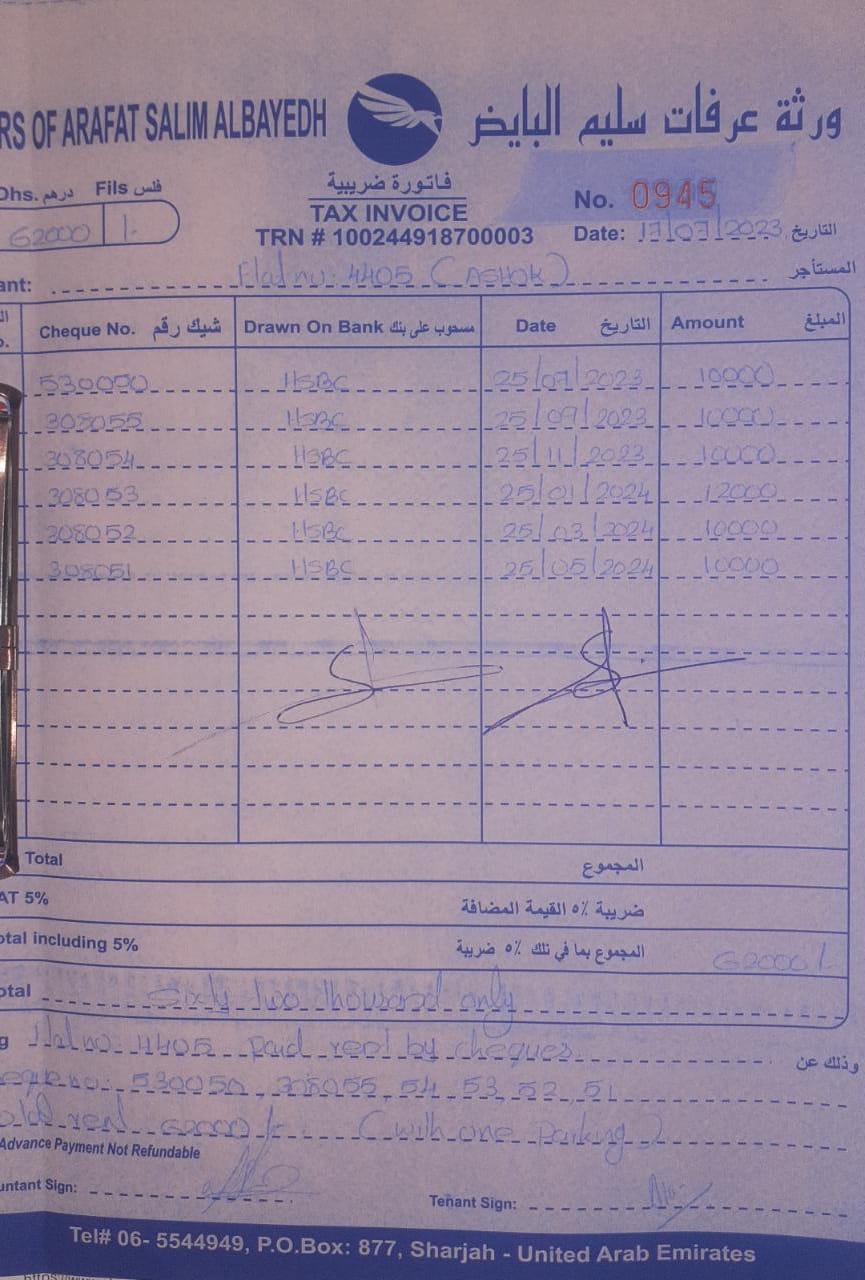 RS OF ARAFAT SALIM ALBAYEDH ورثة عرفات سليم البايض
Dhs. درهم Fils فلس
62000 /-
فاتورة ضريبية
TAX INVOICE
TRN # 100244918700003
No. 0945
Date: 17/07/2023 التاريخ
ant: Flat no: 4405 (ASHOK) المستأجر
Cheque No. شيك رقم Drawn On Bank مسحوب على بنك Date التاريخ Amount المبلغ
530050 HSBC 25/07/2023 10000
308055 HSBC 25/09/2023 10000
308054 HSBC 25/11/2023 10000
308053 HSBC 25/01/2024 12000
308052 HSBC 25/03/2024 10000
308051 HSBC 25/05/2024 10000
Total المجموع
AT 5% ضريبة ٥٪ القيمة المضافة
otal including 5% المجموع بما في تلك ٥٪ ضريبة 62000/-
otal Sixty two thousand only
g Flat no: 4405 paid rent by cheques وذلك عن
eque no: 530050, 308055, 54, 53, 52, 51
old rent 62000/- (with one parking)
Advance Payment Not Refundable
untant Sign: Tenant Sign:
Tel# 06- 5544949, P.O.Box: 877, Sharjah - United Arab Emirates